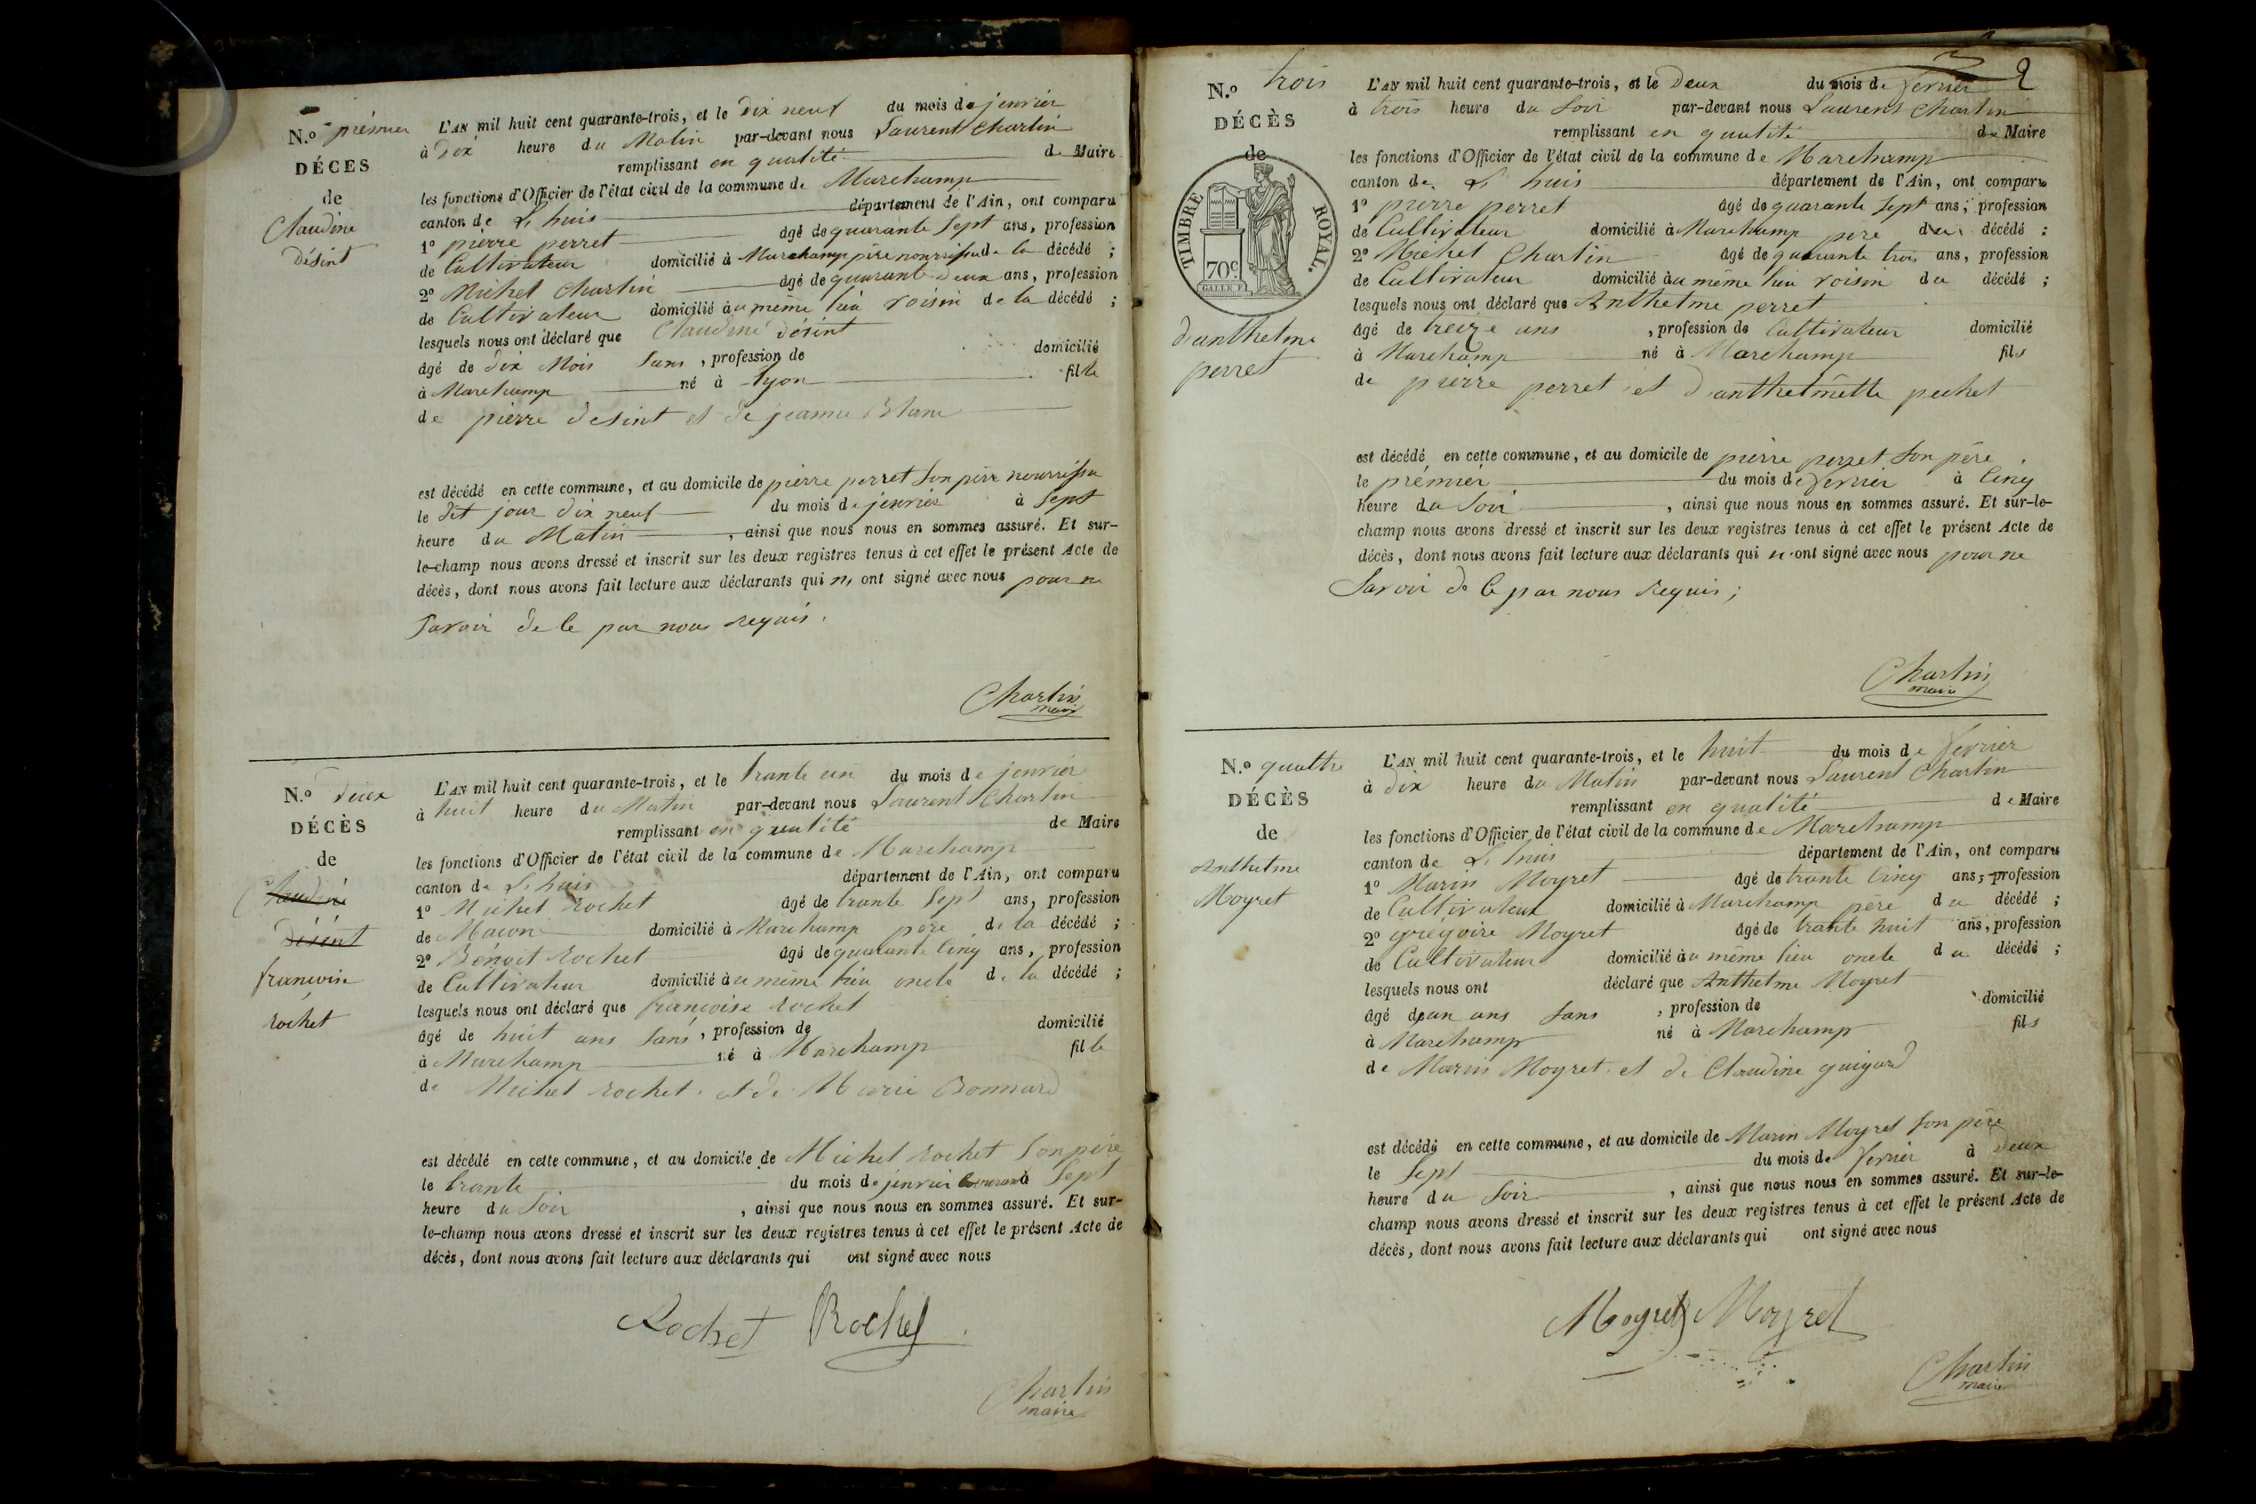 N.º prémier
DÉCES
de
Claudine
désint
L'AN mil huit cent quarante-trois, et le dix neuf du mois de jenvier
à dix heure du Matin par-devant nous Laurent Charlin
remplissant en qualité de Maire
les fonctions d'Officier de l'état civil de la commune de Marchamp
canton de L huis département de l'Ain, ont comparu
1º pierre perret âgé de quarante Sept ans, profession
de Cultivateur domicilié à Marchamp père nourrissu de la décédé ;
2º Michel Charlin âgé de quarante deux ans, profession
de Cultivateur domicilié au même lieu voisin de la décédé ;
lesquels nous ont déclaré que Claudine désint
âgé de dix Mois Sans, profession de domicilié
à Marchamp né à Lyon fille
de pierre desint et de jeanne Blanc
est décédé en cette commune, et au domicile de pierre perret Son père nourrissu
le dit jour dix neuf du mois de jenvier à Sept
heure du Matin, ainsi que nous nous en sommes assuré. Et sur-
le-champ nous avons dressé et inscrit sur les deux registres tenus à cet effet le présent Acte de
décès, dont nous avons fait lecture aux déclarants qui n'ont signé avec nous pour ne
Savoir de Ce par nous requis.
Charlin
maire
N.º deux
DÉCÈS
de
Claudine
Désint
francoise
rochet
L'AN mil huit cent quarante-trois, et le trante un du mois de jenvier
à huit heure du Matin par-devant nous Laurent Charlin
remplissant en qualité de Maire
les fonctions d'Officier de l'état civil de la commune de Marchamp
canton de L huis département de l'Ain, ont comparu
1º Michel rochet âgé de trante Sept ans, profession
de Macon domicilié à Marchamp père de la décédé ;
2º Bénoit rochet âgé de quarante Cinq ans, profession
de Cultivateur domicilié au même lieu oncle de la décédé ;
lesquels nous ont déclaré que francoise rochet
âgé de huit ans Sans, profession de domicilié
à Marchamp né à Marchamp fille
de Michel rochet et de Marie Bonnard
est décédé en cette commune, et au domicile de Michel rochet Son père
le trante du mois de jenvier à Sept
heure du Soir, ainsi que nous nous en sommes assuré. Et sur-
le-champ nous avons dressé et inscrit sur les deux registres tenus à cet effet le présent Acte de
décès, dont nous avons fait lecture aux déclarants qui ont signé avec nous
Rochet Rochet
Charlin
maire
2
N.º trois
DÉCÈS
de
TIMBRE ROYAL.
70c
d'anthelme
perret
L'AN mil huit cent quarante-trois, et le Deux du mois de fevrier
à trois heure du Soir par-devant nous Laurent Charlin
remplissant en qualité de Maire
les fonctions d'Officier de l'état civil de la commune de Marchamp
canton de L huis département de l'Ain, ont comparu
1º pierre perret âgé de quarante Sept ans, profession
de Cultivateur domicilié à Marchamp père du décédé ;
2º Michel Charlin âgé de quarante trois ans, profession
de Cultivateur domicilié au même lieu voisin du décédé ;
lesquels nous ont déclaré que Anthelme perret
âgé de treize ans, profession de Cultivateur domicilié
à Marchamp né à Marchamp fils
de pierre perret et d'anthelmette pechet
est décédé en cette commune, et au domicile de pierre perret Son père
le prémier du mois de fevrier à Cinq
heure du Soir, ainsi que nous nous en sommes assuré. Et sur-le-
champ nous avons dressé et inscrit sur les deux registres tenus à cet effet le présent Acte de
décès, dont nous avons fait lecture aux déclarants qui n'ont signé avec nous pour ne
Savoir de Ce par nous requis ;
Charlin
maire
N.º quattre
DÉCÈS
de
Anthelme
Moyret
L'AN mil huit cent quarante-trois, et le huit du mois de fevrier
à Dix heure du Matin par-devant nous Laurent Charlin
remplissant en qualité de Maire
les fonctions d'Officier de l'état civil de la commune de Marchamp
canton de L huis département de l'Ain, ont comparu
1º Marin Moyret âgé de trante Cinq ans, profession
de Cultivateur domicilié à Marchamp père du décédé ;
2º grégoire Moyret âgé de trante huit ans, profession
de Cultivateur domicilié au même lieu oncle du décédé ;
lesquels nous ont déclaré que Anthelme Moyret
âgé d'un ans Sans, profession de domicilié
à Marchamp né à Marchamp fils
de Marin Moyret et de Claudine guigard
est décédé en cette commune, et au domicile de Marin Moyret Son père
le Sept du mois de fevrier à deux
heure du Soir, ainsi que nous nous en sommes assuré. Et sur-le-
champ nous avons dressé et inscrit sur les deux registres tenus à cet effet le présent Acte de
décès, dont nous avons fait lecture aux déclarants qui ont signé avec nous
Moyret Moyret
Charlin
maire